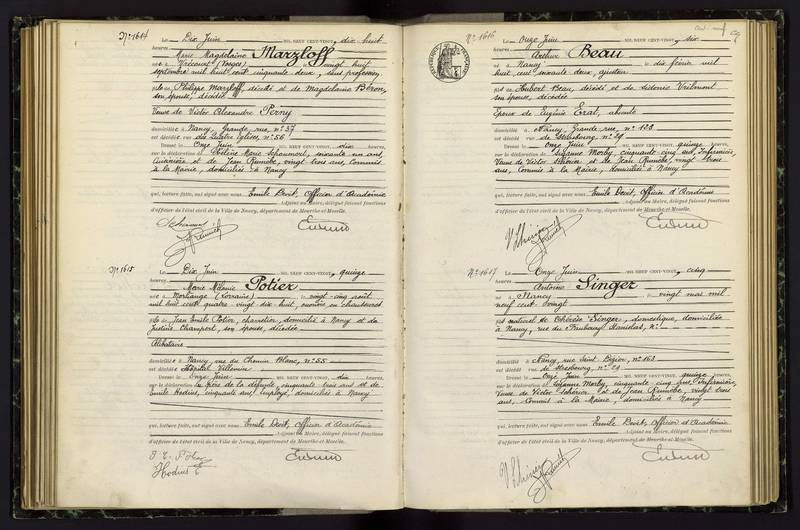 N° 1614
Le Dix Juin MIL NEUF CENT-VINGT, dix huit
heures
Marie Magdeleine Marzloff
née à (Vosges) le vingt huit
septembre mil huit cent cinquante deux, sans profession
fille de Philippe Marzloff, décédé et de Magdeleine Béron,
son épouse, décédée
Veuve de Victor Alexandre Perny
domiciliée à Nancy, Grande rue, n° 37
est décédée rue des Quatre Eglises, n° 56
Dressé le Onze Juin dix heures,
sur la déclaration de soixante un ans,
et de Jean vingt trois ans, Commis
à la Mairie, domiciliés à Nancy
qui, lecture faite, ont signé avec nous Emile Devit, Officier d'Académie
Adjoint au Maire, délégué faisant fonctions
d'officier de l'état civil de la Ville de Nancy, département de Meurthe-et-Moselle.
N° 1615
Le Dix Juin MIL NEUF CENT-VINGT, quinze
heures
Marie Mélanie Potier
née à (Lorraine) le vingt-cinq août
mil huit cent quatre-vingt dix huit, ouvrière en chaussures
fille de Jean Emile Potier, charretier, domicilié à Nancy et de
Justine son épouse, décédée
Célibataire
domiciliée à Nancy rue du Chemin Blanc, n° 55
est décédée Hôpital Villemin
Dressé le Onze Juin dix heures,
sur la déclaration de père de la défunte, cinquante trois ans et de
Emile Hodius, cinquante ans, employé, domiciliés à Nancy
qui, lecture faite, ont signé avec nous Emile Devit, Officier d'Académie
Adjoint au Maire, délégué faisant fonctions
d'officier de l'état civil de la Ville de Nancy, département de Meurthe-et-Moselle.
Hodius E
N° 1616
Le Onze Juin MIL NEUF CENT-VINGT, six
heures
Arthur Beau
né à Nancy le dix février mil
huit cent soixante deux, ajusteur
fils de Hubert Beau, décédé et de Sidonie
son épouse, décédée
Epoux de Eugénie Erat, absente
domicilié à Nancy, Grande rue, n° 128
est décédé rue de Strasbourg, n° 29
Dressé le Onze Juin quinze heures,
sur la déclaration de Suzanne Morby, cinquante cinq ans, Infirmière,
Veuve de Victor et de Jean vingt trois
ans, Commis à la Mairie, domiciliés à Nancy
qui, lecture faite, ont signé avec nous Emile Devit, Officier d'Académie
Adjoint au Maire, délégué faisant fonctions
d'officier de l'état civil de la Ville de Nancy, département de Meurthe-et-Moselle.
N° 1617
Le Onze Juin MIL NEUF CENT-VINGT, cinq
heures
Antoine Singer
né à Nancy le vingt mai mil
neuf cent vingt
fils naturel de Thérèse Singer, domestique, domiciliée
à Nancy, rue du Faubourg Stanislas, n°
domicilié à Nancy, rue Saint Dizier, n° 163
est décédé rue de Strasbourg, n° 29
Dressé le Onze Juin quinze heures,
sur la déclaration de Suzanne Morby, cinquante cinq ans, Infirmière,
Veuve de Victor et de Jean vingt trois
ans, Commis à la Mairie, domiciliés à Nancy
qui, lecture faite, ont signé avec nous Emile Devit, Officier d'Académie
Adjoint au Maire, délégué faisant fonctions
d'officier de l'état civil de la Ville de Nancy, département de Meurthe-et-Moselle.